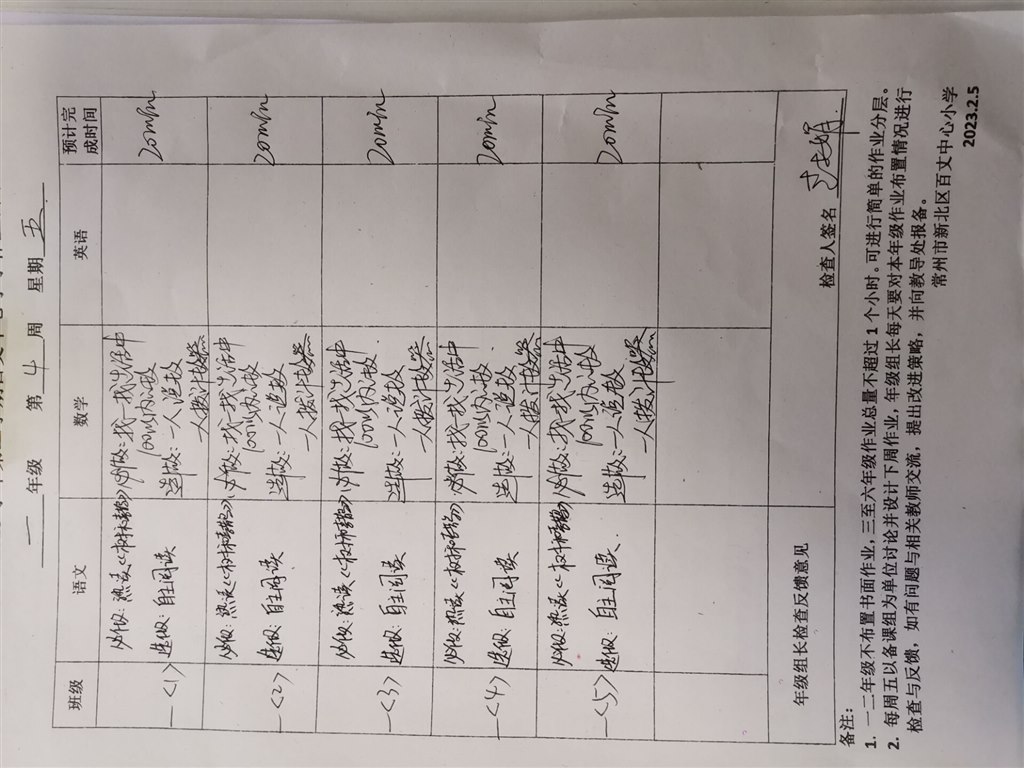 一 年级 第 4 周 星期 五
班级 语文 数学 英语 预计完成时间
一<1> 必做：熟读《树和喜鹊》 必做：找一找生活中 20min
100以内的数
选做：自主阅读 选做：一人说数
一人拨计数器
一<2> 必做：熟读《树和喜鹊》 必做：找一找生活中 20min
100以内的数
选做：自主阅读 选做：一人说数
一人拨计数器
一<3> 必做：熟读《树和喜鹊》 必做：找一找生活中 20min
100以内的数
选做：自主阅读 选做：一人说数
一人拨计数器
一<4> 必做：熟读《树和喜鹊》 必做：找一找生活中 20min
100以内的数
选做：自主阅读 选做：一人说数
一人拨计数器
一<5> 必做：熟读《树和喜鹊》 必做：找一找生活中 20min
100以内的数
选做：自主阅读. 选做：一人说数
一人拨计数器
年级组长检查反馈意见
检查人签名
备注：
1. 一二年级不布置书面作业，三至六年级作业总量不超过 1 个小时。可进行简单的作业分层。
2. 每周五以备课组为单位讨论并设计下周作业，年级组长每天要对本年级作业布置情况进行
检查与反馈，如有问题与相关教师交流，提出改进策略，并向教导处报备。
常州市新北区百丈中心小学
2023.2.5